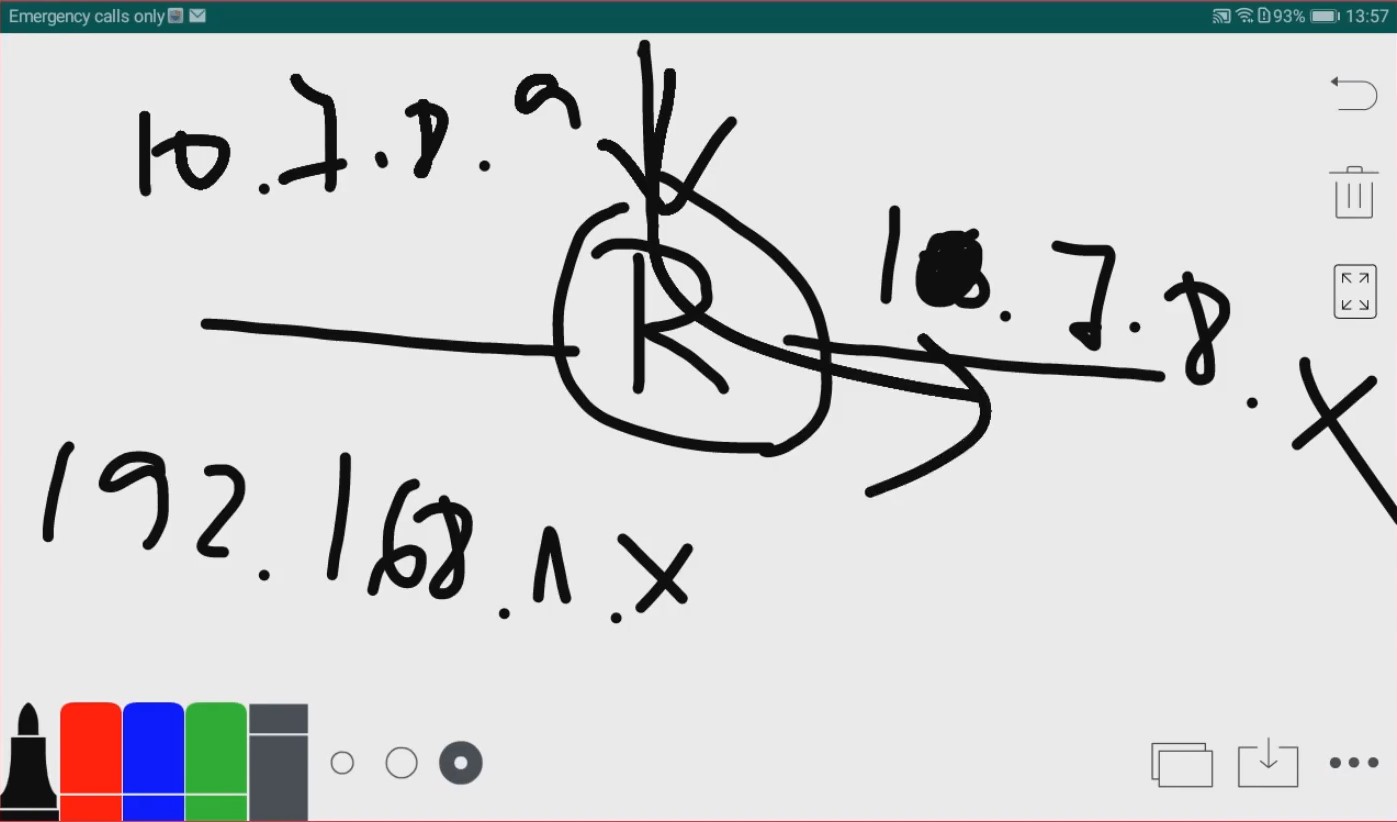 Emergency calls only 93% 13:57
10.7.8.9
R
10.7.8.x
192.168.1.x